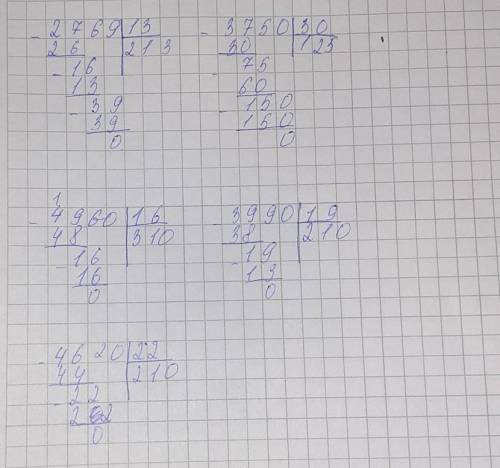 - 2769 | 13
26 | 213
- 16
13
- 39
39
0
- 3750 | 30
30 | 125
- 75
60
- 150
150
0
1
- 4960 | 16
48 | 310
- 16
16
0
- 3990 | 19
38 | 210
- 19
19
0
- 4620 | 22
44 | 210
- 22
22
0